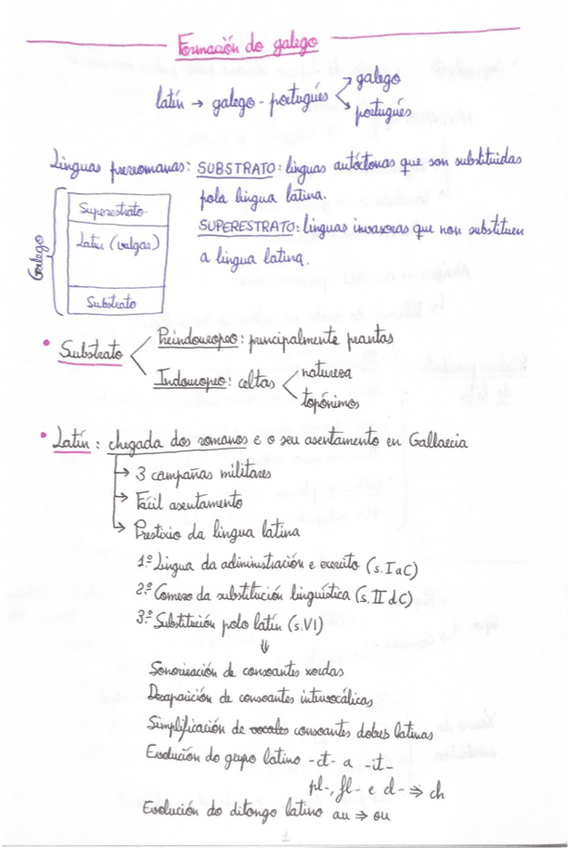 Formación do galego
latín → galego - portugués
galego
portugués
Linguas prerromanas: SUBSTRATO: linguas autóctonas que son substituídas
pola lingua latina.
SUPERESTRATO: linguas invasoras que non substituen
a lingua latina.
Galego
Superestrato
Latín (vulgar)
Substrato
• Substrato
Preindoeuropeo: principalmente prantas
Indoeuropeo: celtas
natureza
topónimos
• Latín: chegada dos romanos e o seu asentamento en Gallaecia
→ 3 campañas militares
→ Fácil asentamento
→ Prestixio da lingua latina
1º Lingua da administración e exercito (s. I a C)
2º Comezo da substitución lingüística (s. II d C)
3º Substitución polo latín (s. VI)
⇓
Sonorización de consoantes xordas
Desaparición de consoantes intervocálicas
Simplificación de vocales consoantes dobres latinas
Evolución do grupo latino -ct- a -it-
pl-, fl- e cl- ⇒ ch
Evolución do ditongo latino au ⇒ ou
1